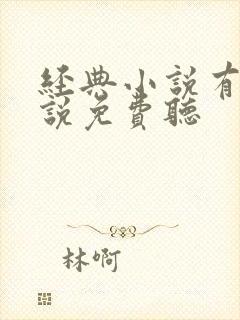 經典小說有
說免費聽
林啊